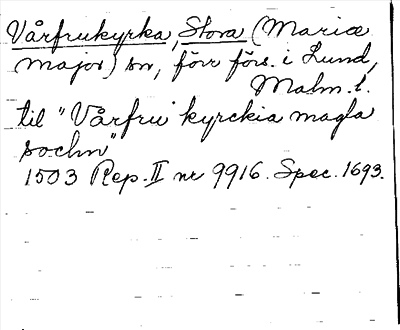 Vårfrukyrka, Stora (Mariæ
major) sn, förr förs. i Lund,
Malm. l.
til "Vårfru kyrckia magla
sochn"
1503 Rep. II nr 9916. Spec. 1693.